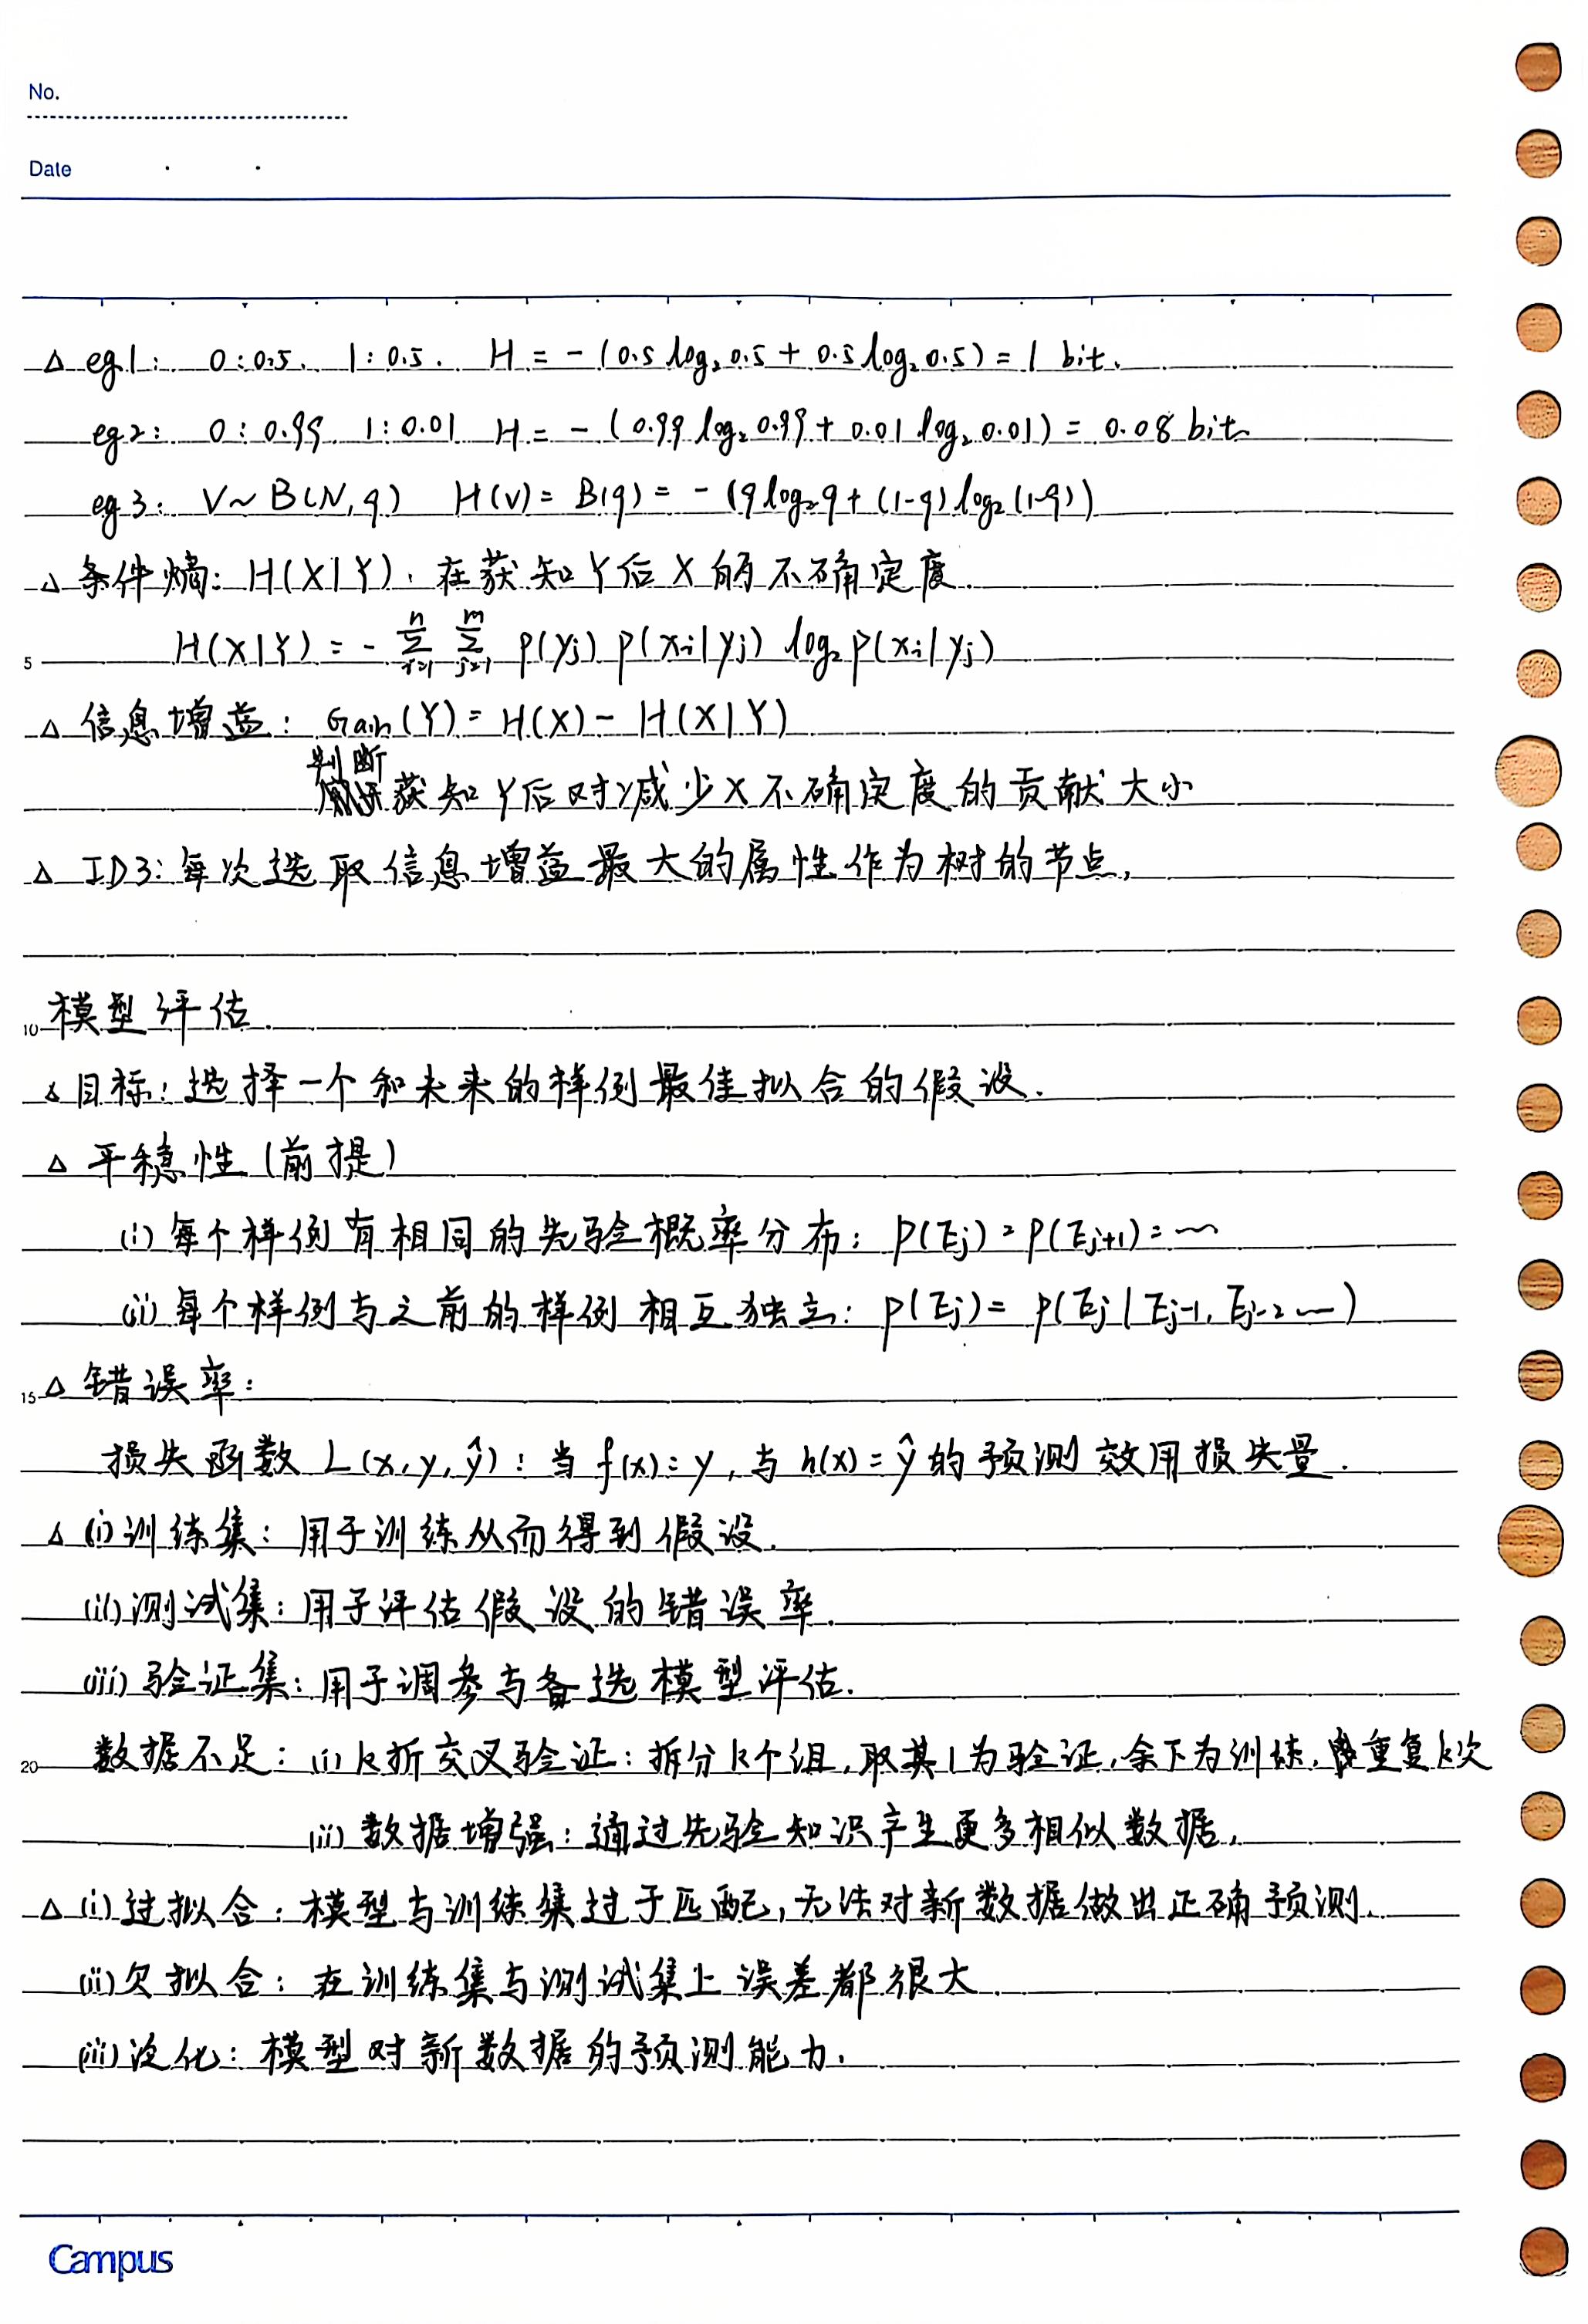 No.
Date
△ eg1: 0:0.5. 1:0.5. H = -(0.5 log₂0.5 + 0.5 log₂0.5) = 1 bit.
eg2: 0:0.99 1:0.01 H = -(0.99 log₂0.99 + 0.01 log₂0.01) = 0.08 bit
eg3: V~B(N,q) H(V) = B(q) = -(q log₂q + (1-q) log₂(1-q))
△ 条件熵: H(X|Y), 在获知Y后X的不确定度.
5 H(X|Y) = - Σᵢ₌₁ⁿ Σⱼ₌₁ᵐ p(yⱼ) p(xᵢ|yⱼ) log₂p(xᵢ|yⱼ)
△ 信息增益: Gain(Y) = H(X) - H(X|Y)
判断获知Y后对减少X不确定度的贡献大小
△ ID3: 每次选取信息增益最大的属性作为树的节点,
10 模型评估
△ 目标: 选择一个和未来的样例最佳拟合的假设.
△ 平稳性 (前提)
(i) 每个样例有相同的先验概率分布: P(Eⱼ) = P(Eⱼ₊₁) = …
(ii) 每个样例与之前的样例相互独立: P(Eⱼ) = P(Eⱼ | Eⱼ₋₁, Eⱼ₋₂ …)
15 △ 错误率:
损失函数 L(x, y, ŷ): 当 f(x) = y, 与 h(x) = ŷ 的预测效用损失量.
△ (i) 训练集: 用于训练从而得到假设.
(ii) 测试集: 用于评估假设的错误率.
(iii) 验证集: 用于调参与备选模型评估.
20 数据不足: (i) k折交叉验证: 拆分k个组, 取其1为验证, 余下为训练, 重复k次
(ii) 数据增强: 通过先验知识产生更多相似数据,
△ (i) 过拟合: 模型与训练集过于匹配, 无法对新数据做出正确预测.
(ii) 欠拟合: 在训练集与测试集上误差都很大.
(iii) 泛化: 模型对新数据的预测能力.
Campus